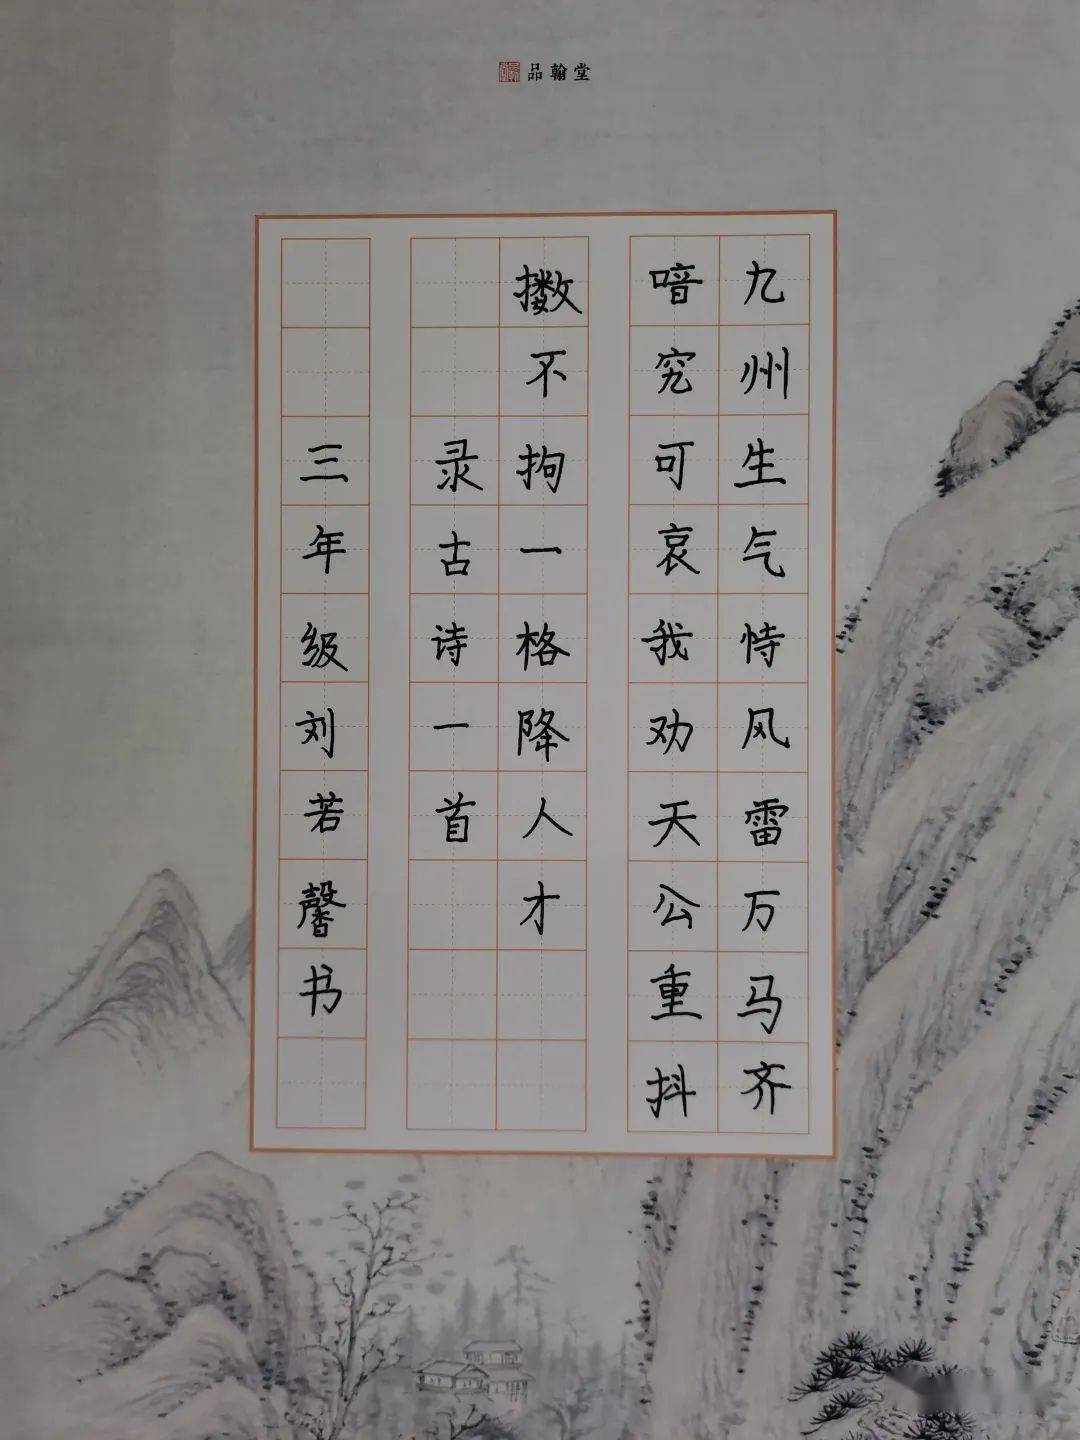 品翰堂
九州生气恃风雷万马齐
喑究可哀我劝天公重抖
擞不拘一格降人才
录古诗一首
三年级刘若馨书